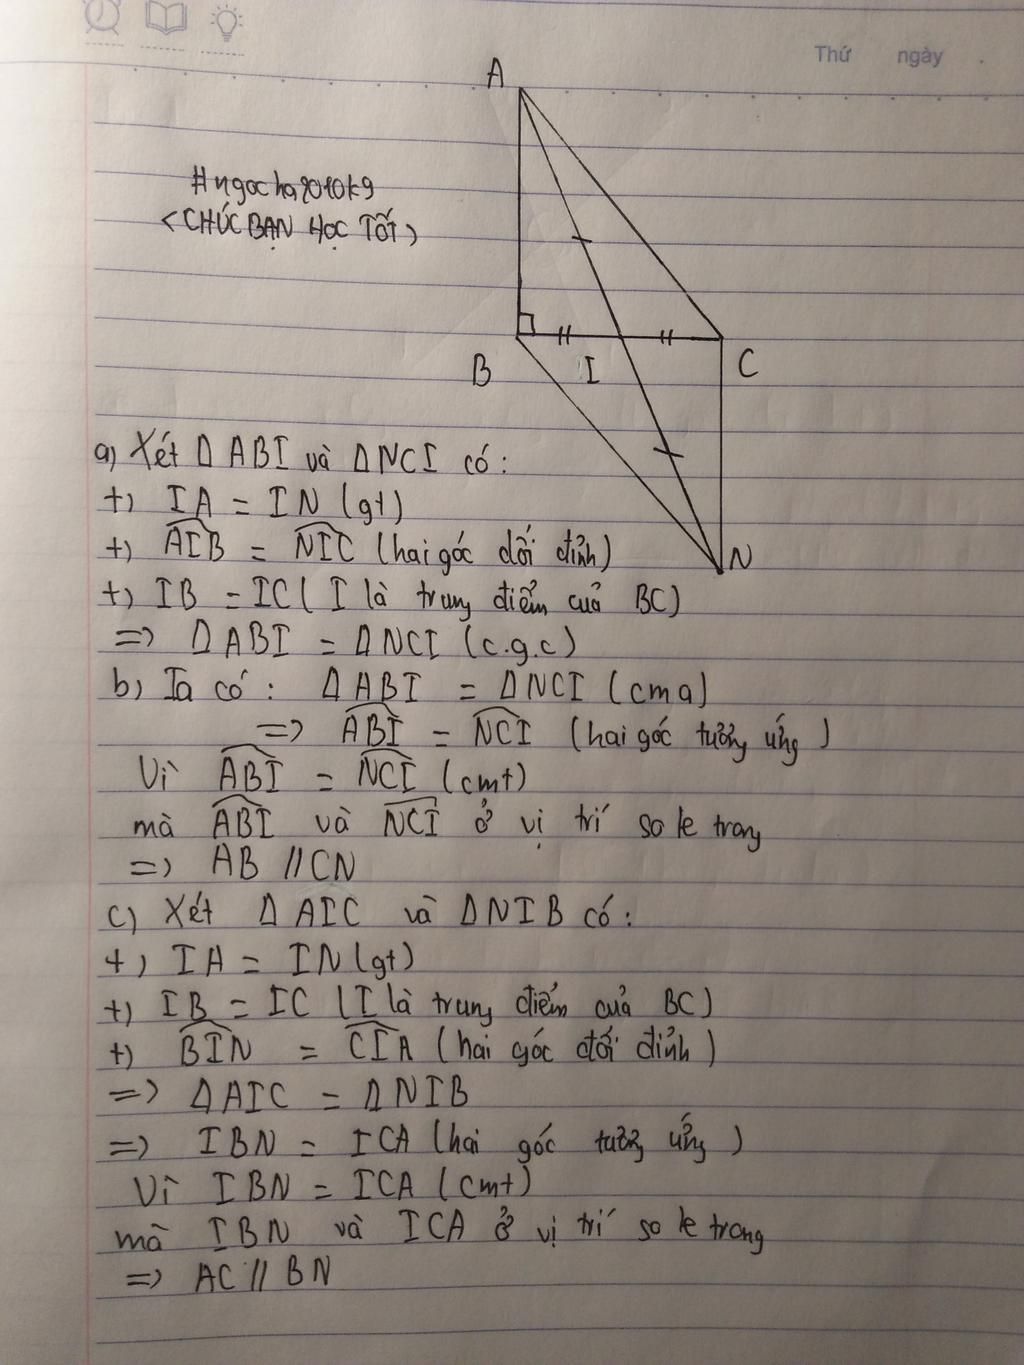 Thứ ngày
A
#ngocha2010k9
<CHÚC BẠN HỌC TỐT>
B I C
N
a) Xét Δ ABI và ΔNCI có:
+) IA = IN (gt)
+) AIB = NIC (hai góc đối đỉnh)
+) IB = IC ( I là trung điểm của BC)
=> Δ ABI = ΔNCI (c.g.c)
b) Ta có: Δ ABI = ΔNCI (cm a)
=> ABI = NCI (hai góc tương ứng)
Vì ABI = NCI (cmt)
mà ABI và NCI ở vị trí so le trong
=> AB // CN
c) Xét Δ AIC và ΔNIB có:
+) IA = IN (gt)
+) IB = IC ( I là trung điểm của BC)
+) BIN = CIA (hai góc đối đỉnh)
=> ΔAIC = ΔNIB
=> IBN = ICA (hai góc tương ứng)
Vì IBN = ICA (cmt)
mà IBN và ICA ở vị trí so le trong
=> AC // BN